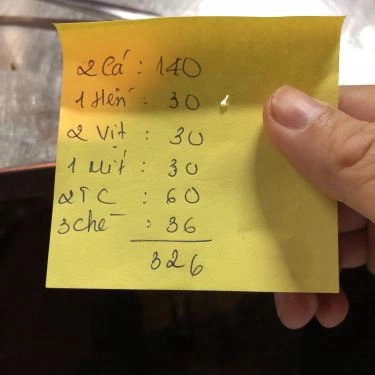 2 Cá : 140
1 Hến : 30
2 Vịt : 30
1 Mít : 30
2TC : 60
3 chè : 36
326